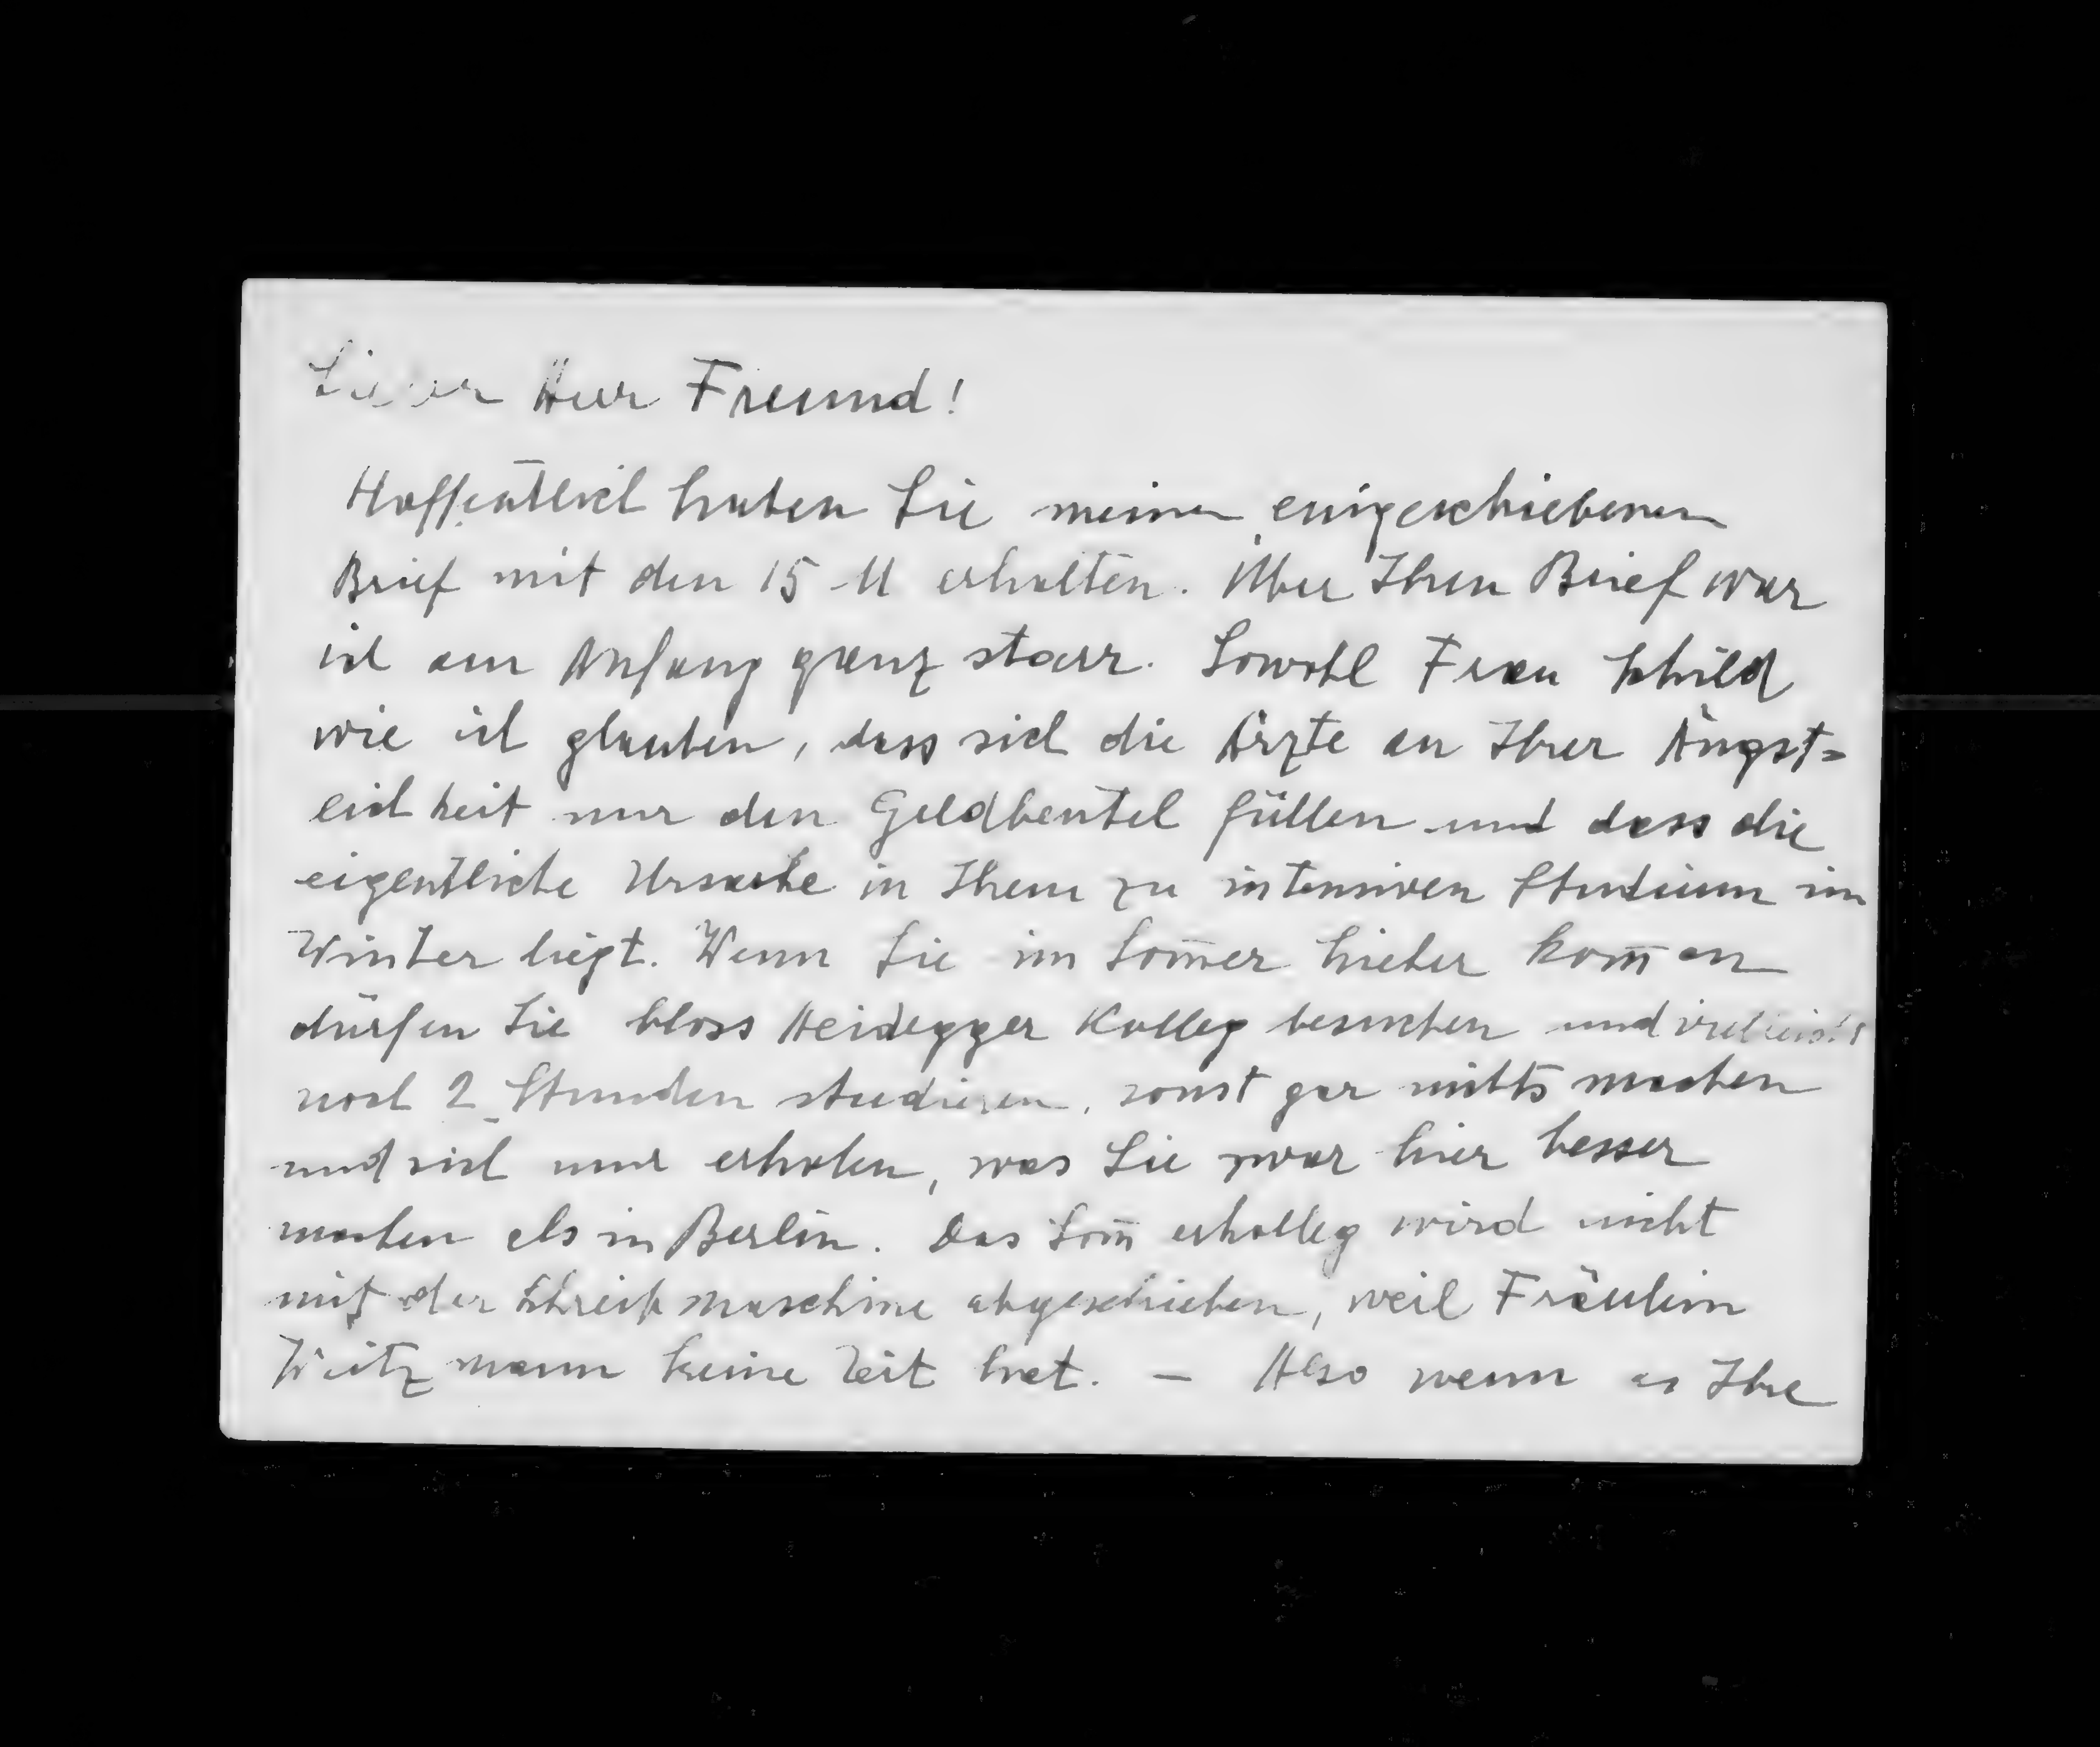 Lieber Herr Freund!
Hoffentlich haben Sie meinen eingeschriebenen
Brief mit den 15 M erhalten. Über Ihren Brief war
ich am Anfang ganz starr. Sowohl Frau Schild
wie ich glauben, dass sich die Ärzte an Ihrer Ängst=
lichkeit nur den Geldbeutel füllen und dass die
eigentliche Ursache in Ihrem zu intensiven Studium im
Winter liegt. Wenn Sie im Som̅er hieher kom̅en
dürfen Sie bloss Heidegger Kolleg besuchen und vielleicht
noch 2 Stunden studieren, sonst gar nichts machen
und sich nur erholen, was Sie zwar hier besser
machen als in Berlin. Das Som̅erkolleg wird nicht
mit der Schreibmaschine abgeschrieben, weil Fräulein
mann keine Zeit hat. — Also wenn es Ihre